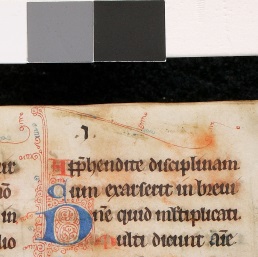 Apphendite disciplinam
Cum exarserit in breui
Dñe quid multiplicati
Multi dicunt aĩe